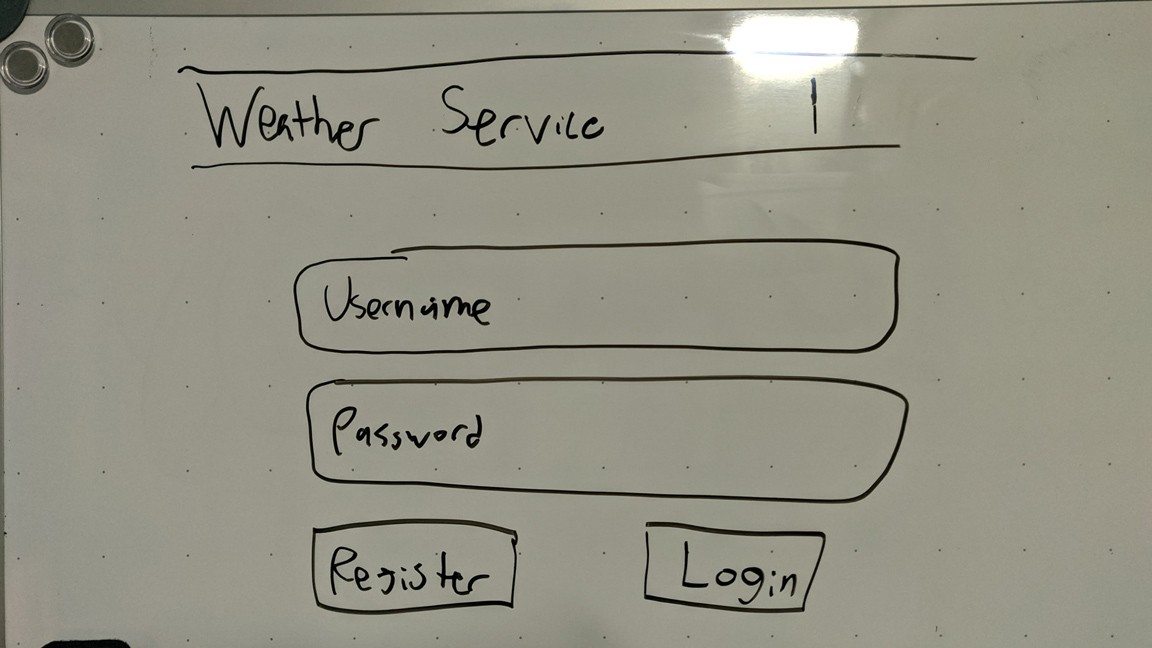 Weather Service |
Username
Password
Register Login